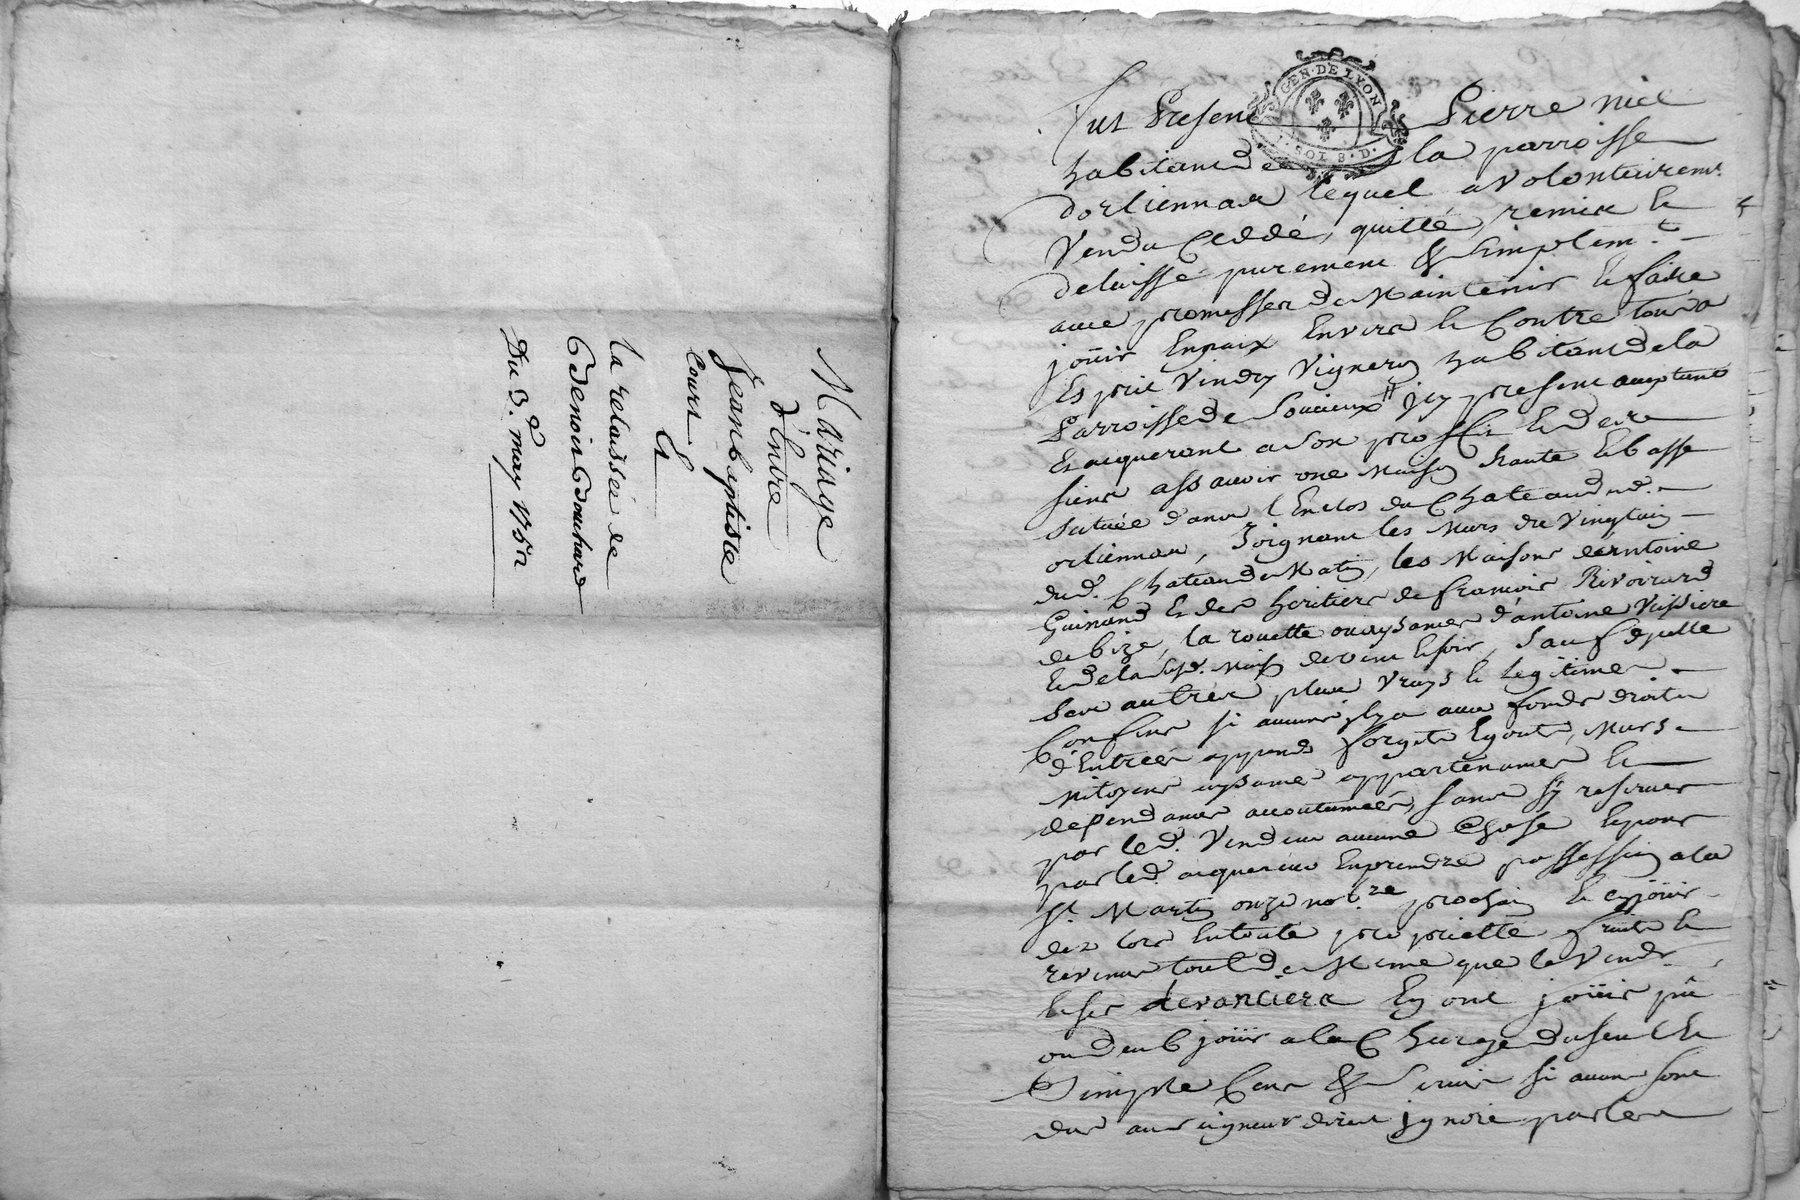 Mariage
d'Entre
Jean baptiste
Cours
Et
la relaissée de
Benoit Bouchard
Du 3e may 1752
GEN·DE LYON
SOL 8·D·
Fut Present Pierre niel
habitant de la parroisse
dorliennas lequel a volontairemt.
Vendu Ceddé, quitté, remis Et
delaissé purement & simplemt.
avec promesses de Maintenir Et faire
joüir En paix Envers Et Contre tous a
Esprit Vindry Vigneron habitant de la
Parroisse de Soucieux Icy present acceptant
Et acquerant a son proffit Et des
siens assavoir une Maison haute Et basse
située dans l'Enclos du Chateau dud.
orliennas, Joignant les Murs du Vingtain
dud. Chateau de Matin, les Maisons d'antoine
Guinand Et des heritiers de francois Rivoirard
de bize, la rouette ou aysances d'antoine Vissiere
Et de lad. Maison de vent Et soir, Sauf dyelle
Ses autres plus Vrays Et legitimes
Confins si aucuns il y a avec fonds droits
d'Entrées appends forgets Egouts, Murs
Mitoyens aysances appartenances Et
dependances accoutumées, sans s'y reserver
par led. Vendeur aucune Chose Et pour
par led. acquereur En prendre possession a la
St. Martin onze nov.re prochain Et en joüir
des lors En toute proprietté fruits Et
revenus tout de Meme que le Vendr.
Et ses devanciers En ont joüir pû
ou deub joüir a la Charge du seul Et
Simple Cens & Servis si aucun sont
dus au seigneur direct ignoré par les